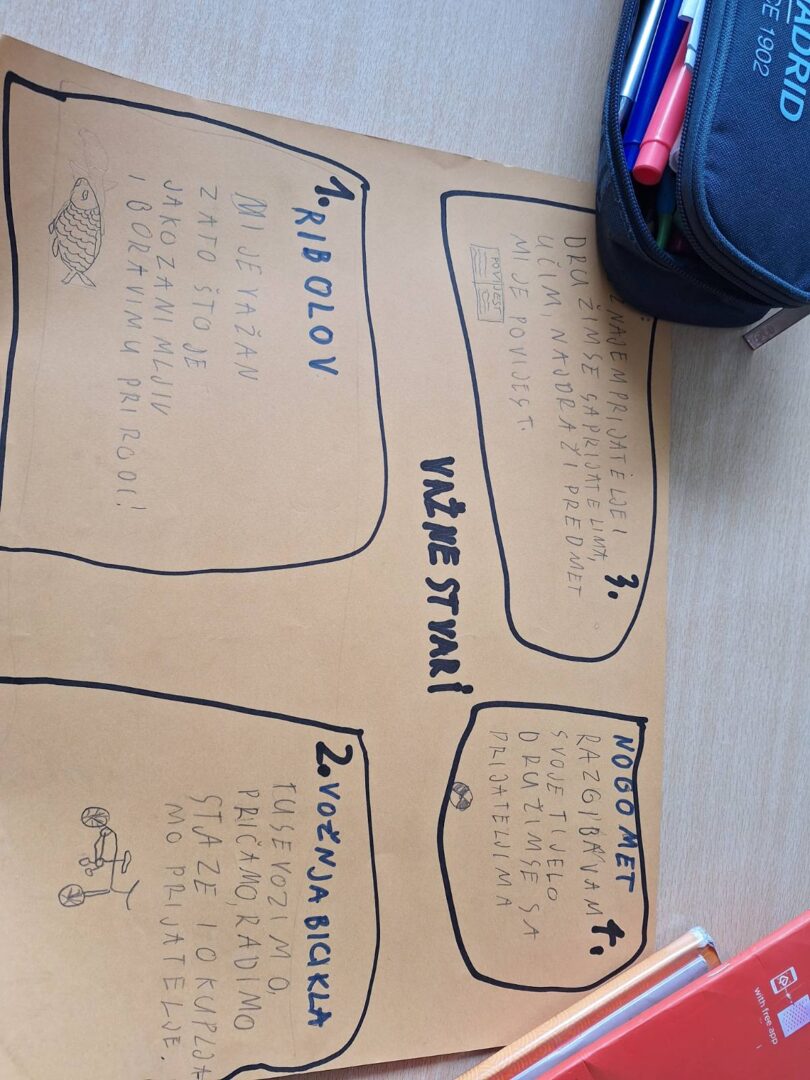 VAŽNE STVARI
1. RIBOLOV
MI JE VAŽAN
ZATO ŠTO JE
JAKO ZANIMLJIV
I BORAVIM U PRIRODI!
2. VOŽNJA BICIKLA
TU SE VOZIMO,
PRIČAMO, RADIMO
STAZE I OKUPLJA
MO PRIJATELJE.
3.
ZNAJEM PRIJATELJE I
DRUŽIM SE SA PRIJATELIMA,
UČIM, NAJDRAŽI PREDMET
MI JE POVIJEST.
POVIJEST
NOGOMET 4.
RAZGIBAVAM
SVOJE TIJELO
DRUŽIM SE SA
PRIJATELJIMA
ADRID
CE 1902
with free app